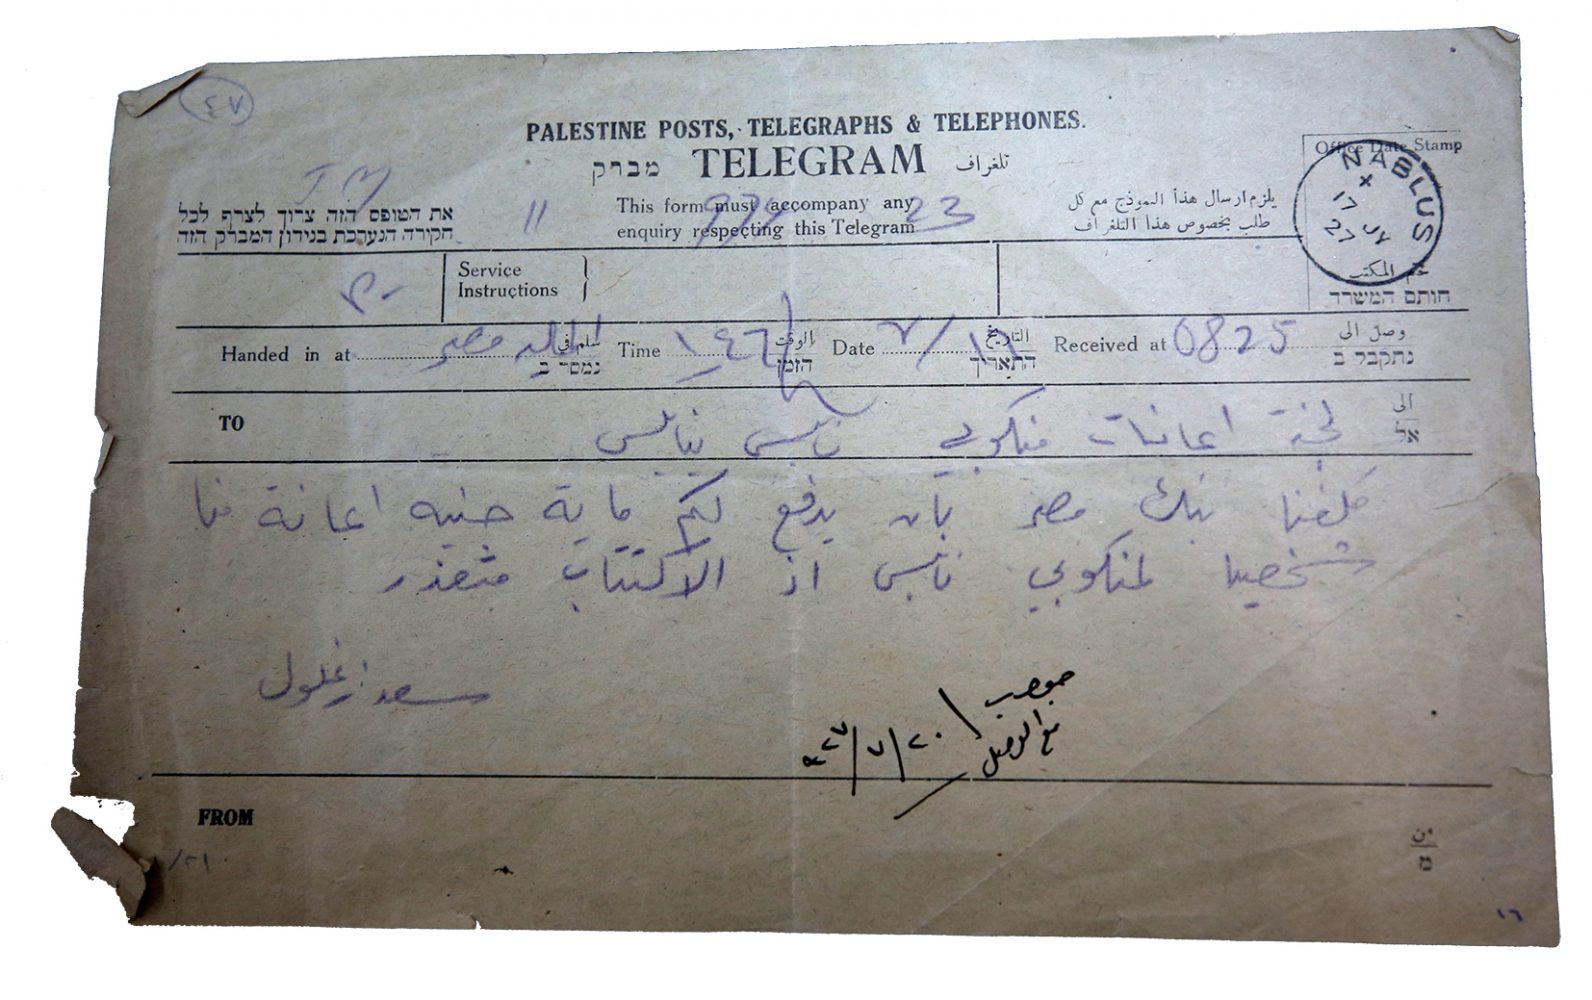 ٤٧
PALESTINE POSTS, TELEGRAPHS & TELEPHONES.
מברק TELEGRAM تلغراف
Office Date Stamp
NABLUS
17 JY
27
את הטופס הזה צרוך לצרף לכל
חקורה הנערכת בנידון המברק הזה
11
This form must accompany any
enquiry respecting this Telegram
974
23
يلزم ارسال هذا النموذج مع كل
طلب بخصوص هذا التلغراف
Service
Instructions
ختم المكتب
חותם המשרד
Handed in at مصر سلم في נמסר ב Time الوقت הזמן Date التاريخ התאריך Received at 0825 وصل الى נתקבל ב
TO لجنة اعانات منكوبي نابلس بنابلس الى אל
كلفنا بنك مصر بان يدفع لكم ماية جنيه اعانة منا
شخصيا لمنكوبي نابلس اذ الاكتتاب متعذر
سعد زغلول
مع الوصل
٩٢٧/٧/٢٠
FROM من מ
/٢١
١٦